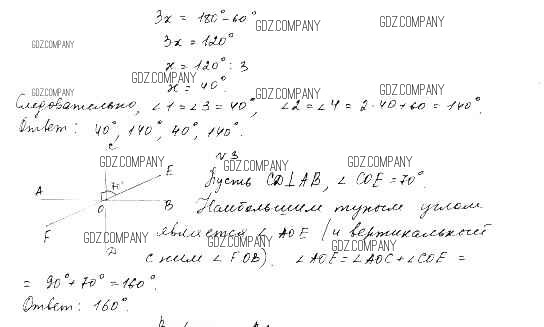 3x = 180° - 60°
GDZ.COMPANY
GDZ.COMPANY
GDZ.COMPANY
3x = 120°
x = 120° : 3
GDZ.COMPANY
x = 40°.
GDZ.COMPANY
GDZ.COMPANY
GDZ.COMPANY
Следовательно, ∠1 = ∠3 = 40°, ∠2 = ∠4 = 2·40+60 = 140°.
Ответ: 40°, 140°, 40°, 140°.
C
GDZ.COMPANY
№3
GDZ.COMPANY
GDZ.COMPANY
E
Пусть CD⊥AB, ∠COE = 70°.
A
O
B
Наибольшим тупым углом
F
GDZ.COMPANY
является ∠AOE (и вертикальный
GDZ.COMPANY
GDZ.COMPANY
с ним ∠FOB). ∠AOE = ∠AOC + ∠COE =
= 90° + 70° = 160°.
Ответ: 160°.